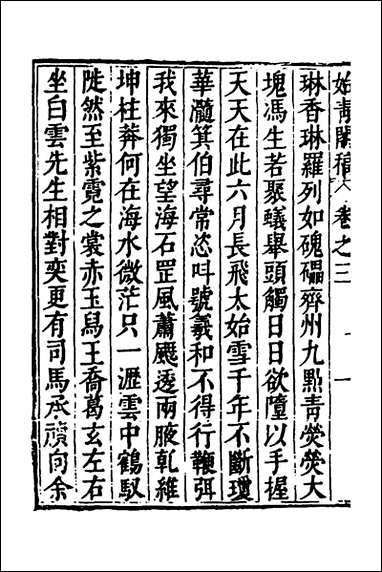 始青閣稿 卷之三 一
琳香琳羅列如磈礧齊州九點青熒熒大
塊馮生若聚蟻舉頭觸日日欲墮以手握
天天在此六月長飛太始雪千年不斷瓊
華瀡箕伯尋常恣叫號羲和不得行鞭弭
我來獨坐望海石罡風蕭颼透兩腋乹維
坤柱莽何在海水微茫只一瀝雲中鶴馭
陡然至紫霓之裳赤玉舄王喬葛玄左右
坐白雲先生相對奕更有司馬承禎向余